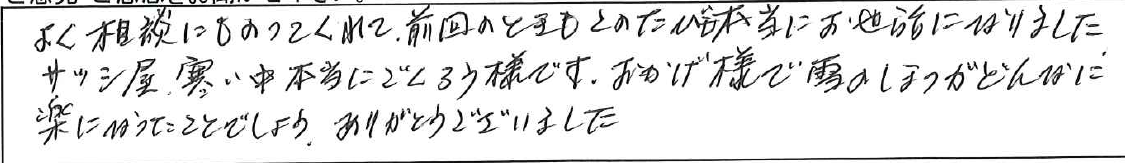 よく相談にものってくれて、前回のときもこのたびも本当にお世話になりました
サッシ屋、寒い中本当にごくろう様です。おかげ様で雪のしまつがどんなに
楽になったことでしょう、ありがとうございました